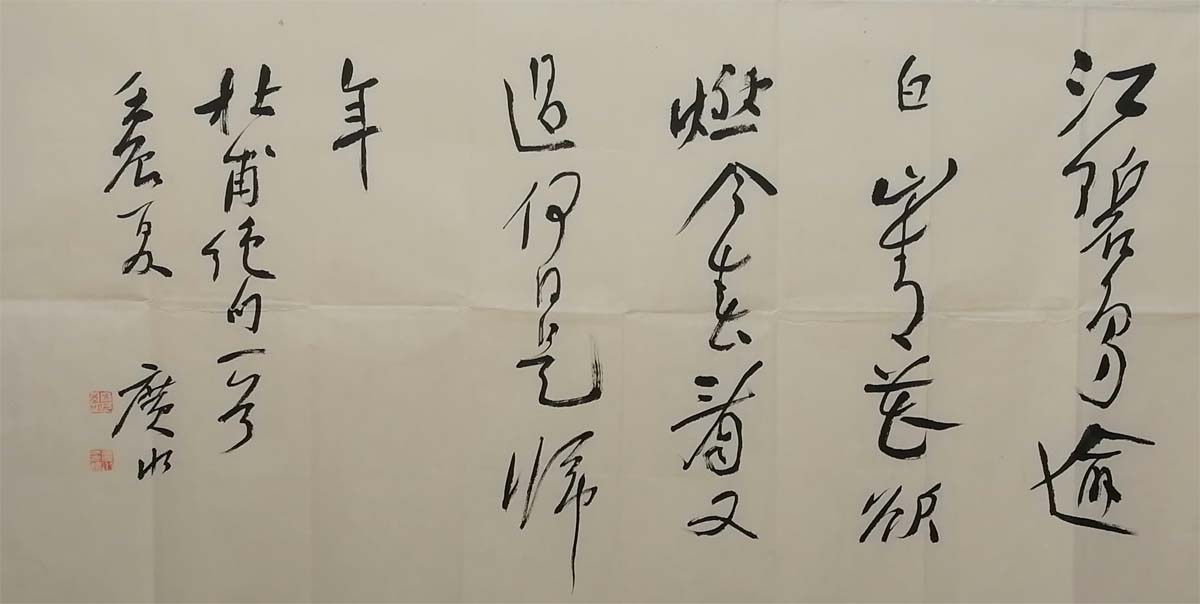 江碧鳥逾
白山青花欲
燃今春看又
過何日是歸
年
杜甫絕句一首
壬辰夏 廣